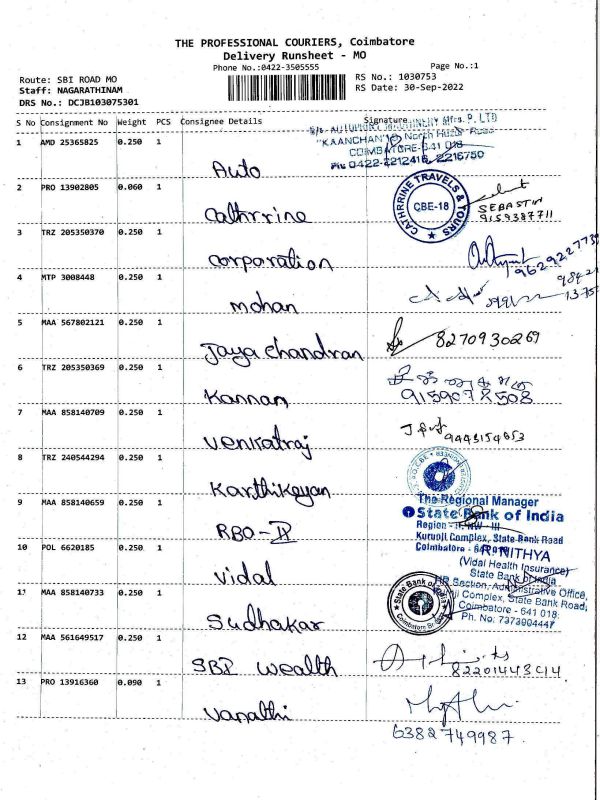 THE PROFESSIONAL COURIERS, Coimbatore
Delivery Runsheet - MO
Phone No.:0422-3505555
Page No.:1
Route: SBI ROAD MO
RS No.: 1030753
Staff: NAGARATHINAM
RS Date: 30-Sep-2022
DRS No.: DCJB103075301
S No Consignment No Weight PCS Consignee Details Signature
1 AMD 25365825 0.250 1 Auto
"KAANCHAN" North Huzur Road
COIMBATORE-641 018
Ph: 0422-2212416, 2216750
2 PRO 13902805 0.060 1 Cathrrine
CATHRRINE TRAVELS & TOURS
CBE-18
SEBASTIN
9159387711
3 TRZ 205350370 0.250 1 Corporation
4 MTP 3008448 0.250 1 mohan
5 MAA 567802121 0.250 1 Jaya chandran
8270930269
6 TRZ 205350369 0.250 1 Kannan
9159078508
7 MAA 858140709 0.250 1 Venkatraj
9443154853
8 TRZ 240544294 0.250 1 Karthikeyan
9 MAA 858140659 0.250 1 RBO-IV
The Regional Manager
State Bank of India
Kurunji Complex, State Bank Road
Coimbatore -
10 POL 6620185 0.250 1 Vidal
R. NITHYA
(Vidal Health Insurance)
State Bank of India
HR Section, Administrative Office,
Complex, State Bank Road,
Coimbatore - 641 018.
Ph. No: 7373904447
11 MAA 858140733 0.250 1 Sudhakar
State Bank of India
12 MAA 561649517 0.250 1 SBI wealth
13 PRO 13916360 0.090 1 Vanathi
6382749987.